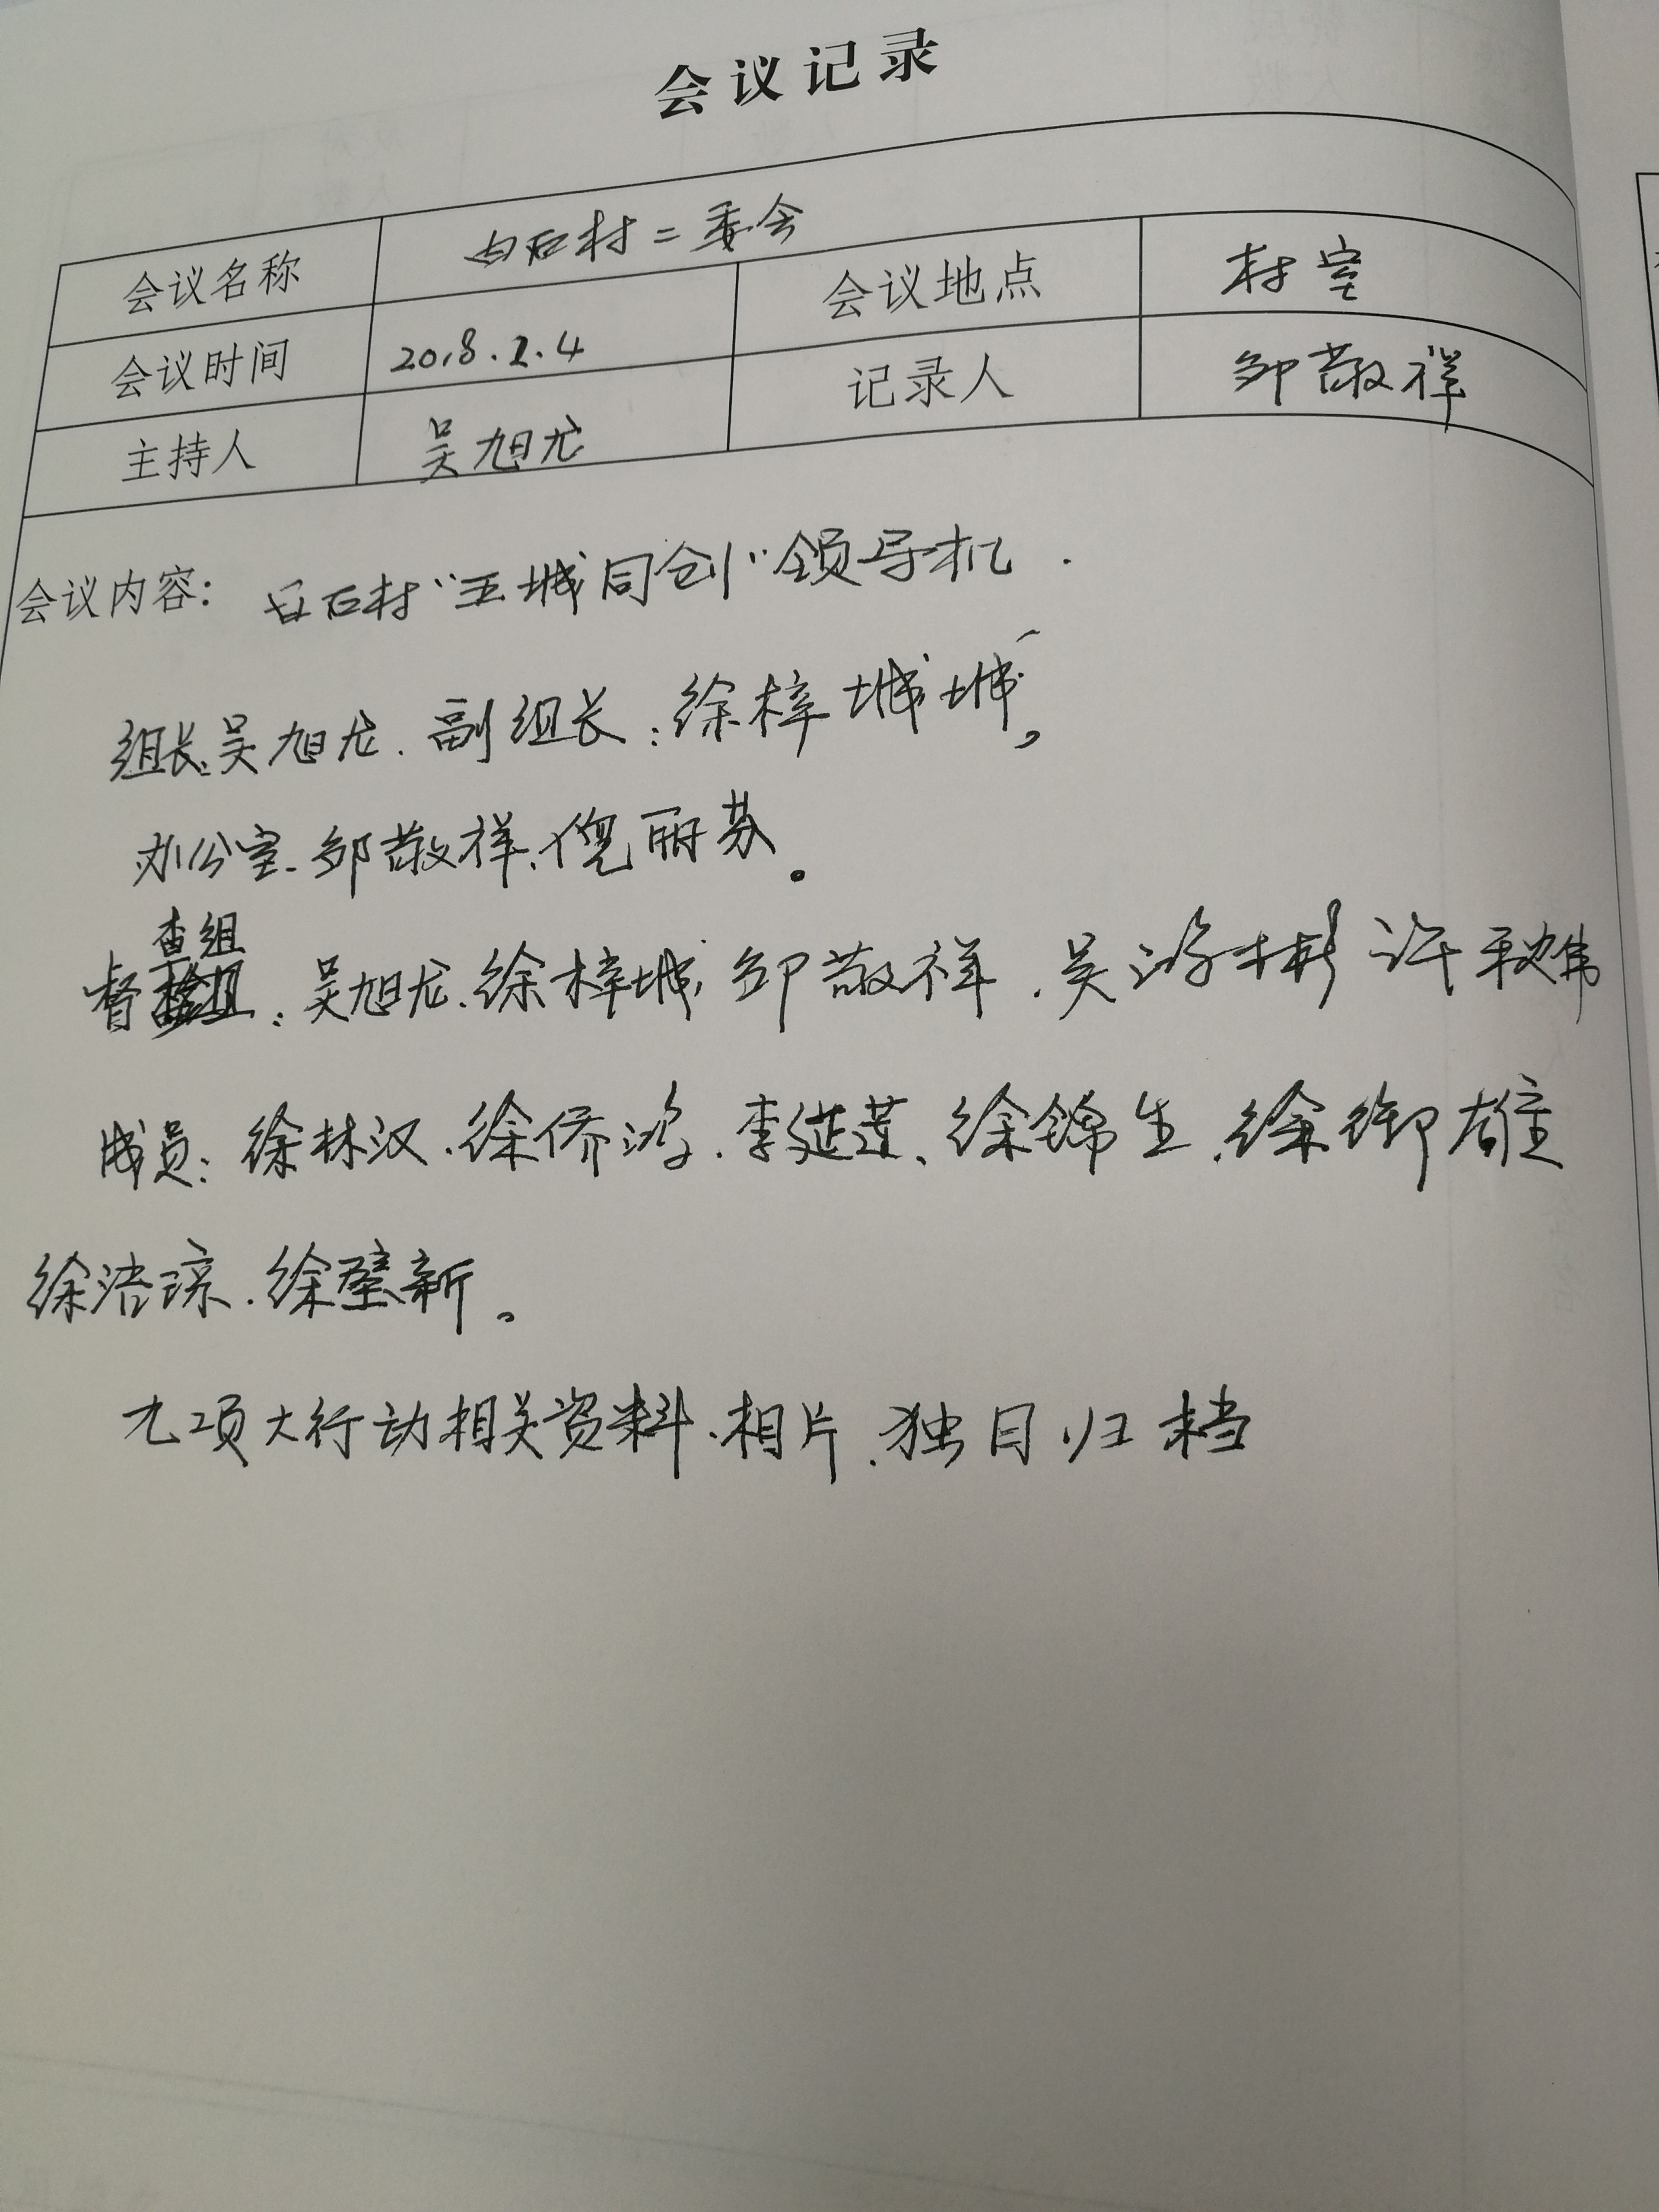 会议记录
会议名称 白石村二委会
会议时间 2018.2.4 会议地点 村室
主持人 吴旭龙 记录人 邹敬祥
会议内容: 白石村"五城同创"领导机.
组长、吴旭龙.副组长:徐梓城城,
办公室.邹敬祥、倪丽苏。
查组
督:吴旭龙.徐梓城,邹敬祥.吴游彬 许秋伟
成员:徐林汉.徐侨鸿.李延莲、徐锦生.徐御雄
徐浩琼.徐壁新。
九项大行动相关资料.相片.独目归档